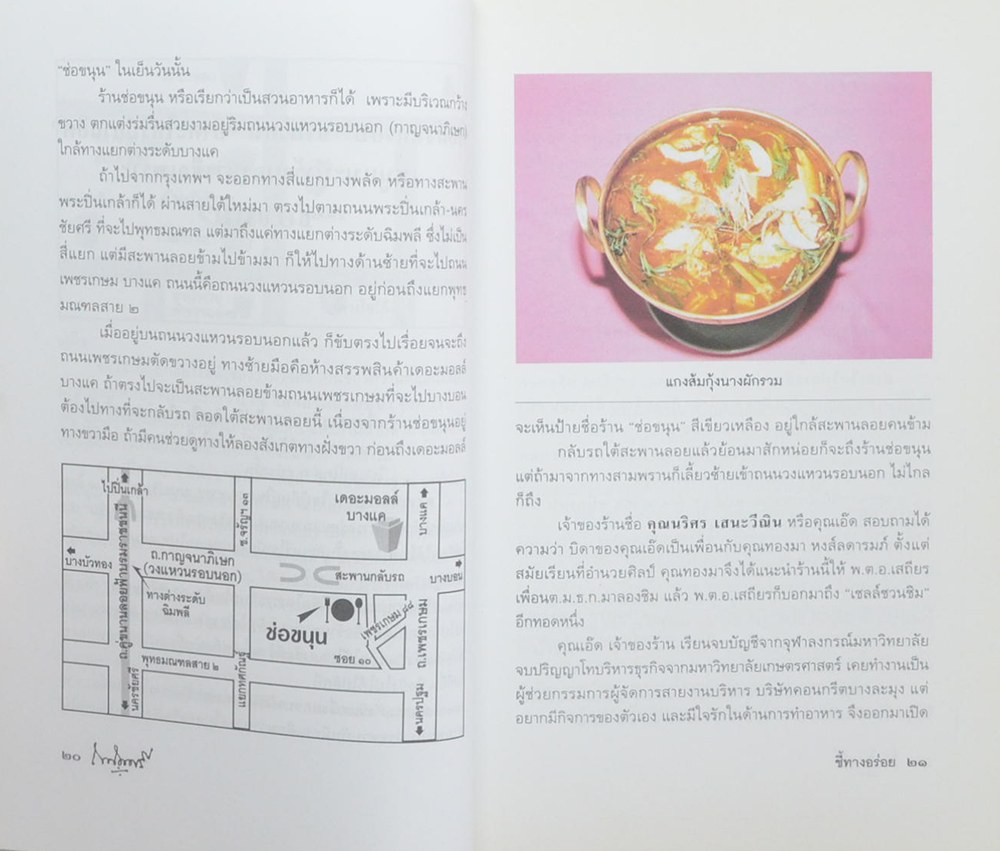 “ช่อขนุน” ในเย็นวันนั้น
ร้านช่อขนุน หรือเรียกว่าเป็นสวนอาหารก็ได้ เพราะมีบริเวณกว้าง
ขวาง ตกแต่งร่มรื่นสวยงามอยู่ริมถนนวงแหวนรอบนอก (กาญจนาภิเษก)
ใกล้ทางแยกต่างระดับบางแค
ถ้าไปจากกรุงเทพฯ จะออกทางสี่แยกบางพลัด หรือทางสะพาน
พระปิ่นเกล้าก็ได้ ผ่านสายใต้ใหม่มา ตรงไปตามถนนพระปิ่นเกล้า-นคร
ชัยศรี ที่จะไปพุทธมณฑล แต่มาถึงแค่ทางแยกต่างระดับฉิมพลี ซึ่งไม่เป็น
สี่แยก แต่มีสะพานลอยข้ามไปข้ามมา ก็ให้ไปทางด้านซ้ายที่จะไปถนน
เพชรเกษม บางแค ถนนนี้คือถนนวงแหวนรอบนอก อยู่ก่อนถึงแยกพุทธ
มณฑลสาย ๒
เมื่ออยู่บนถนนวงแหวนรอบนอกแล้ว ก็ขับตรงไปเรื่อยจนจะถึง
ถนนเพชรเกษมตัดขวางอยู่ ทางซ้ายมือคือห้างสรรพสินค้าเดอะมอลล์
บางแค ถ้าตรงไปจะเป็นสะพานลอยข้ามถนนเพชรเกษมที่จะไปบางบอน
ต้องไปทางที่จะกลับรถ ลอดใต้สะพานลอยนี้ เนื่องจากร้านช่อขนุนอยู่
ทางขวามือ ถ้ามีคนช่วยดูทางให้ลองสังเกตทางฝั่งขวา ก่อนถึงเดอะมอลล์
ไปปิ่นเกล้า
ซ.จรัญฯ ๑๓
เดอะมอลล์
บางแค
บางแค
บางบัวทอง
ถ.คู่ขนานลอยฟ้าบรมราชชนนี
ถ.กาญจนาภิเษก
(วงแหวนรอบนอก)
สะพานกลับรถ
บางบอน
ทางต่างระดับ
ฉิมพลี
ช่อขนุน
เพชรเกษม ๘๘
ถ.เพชรเกษม
พุทธมณฑลสาย ๒
ซอย ๑๐
นครชัยศรี
แยกทศกัณฑ์
นครปฐม
๒๐
แกงส้มกุ้งนางผักรวม
จะเห็นป้ายชื่อร้าน “ช่อขนุน” สีเขียวเหลือง อยู่ใกล้สะพานลอยคนข้าม
กลับรถใต้สะพานลอยแล้วย้อนมาสักหน่อยก็จะถึงร้านช่อขนุน
แต่ถ้ามาจากทางสามพรานก็เลี้ยวซ้ายเข้าถนนวงแหวนรอบนอก ไม่ไกล
ก็ถึง
เจ้าของร้านชื่อ คุณนริศร เสนะวีณิน หรือคุณเอ๊ด สอบถามได้
ความว่า บิดาของคุณเอ๊ดเป็นเพื่อนกับคุณทองมา หงส์ลดารมภ์ ตั้งแต่
สมัยเรียนที่อำนวยศิลป์ คุณทองมาจึงได้แนะนำร้านนี้ให้ พ.ต.อ.เสถียร
เพื่อนต.ม.ธ.ก.มาลองชิม แล้ว พ.ต.อ.เสถียรก็บอกมาถึง “เชลล์ชวนชิม”
อีกทอดหนึ่ง
คุณเอ๊ด เจ้าของร้าน เรียนจบบัญชีจากจุฬาลงกรณ์มหาวิทยาลัย
จบปริญญาโทบริหารธุรกิจจากมหาวิทยาลัยเกษตรศาสตร์ เคยทำงานเป็น
ผู้ช่วยกรรมการผู้จัดการสายงานบริหาร บริษัทคอนกรีตบางละมุง แต่
อยากมีกิจการของตัวเอง และมีใจรักในด้านการทำอาหาร จึงออกมาเปิด
ชี้ทางอร่อย ๒๑